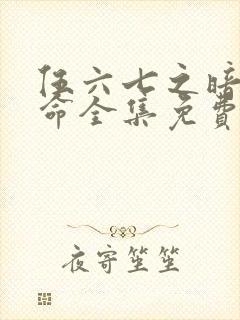 伍六七之暗
命全集免费
夜寄笙笙